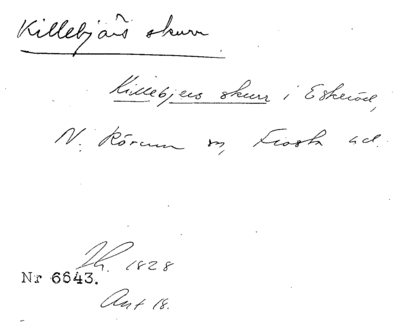 Killebjärs skurr
Killebjers skurr i Eskeröd,
N. Rörum sn, Frosta hd.
Jh. 1828
Nr 6643.
Ant 18.